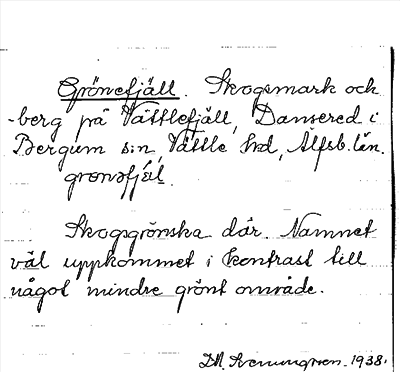 Grönefjäll. Skogsmark och
-berg på Vättlefjäll, Dansered i
Bergum s:n, Vättle hd, Älfsb. län.
grønəfjɛ́l.
Skogsgrönska där. Namnet
väl uppkommet i kontrast till
något mindre grönt område.
1938.